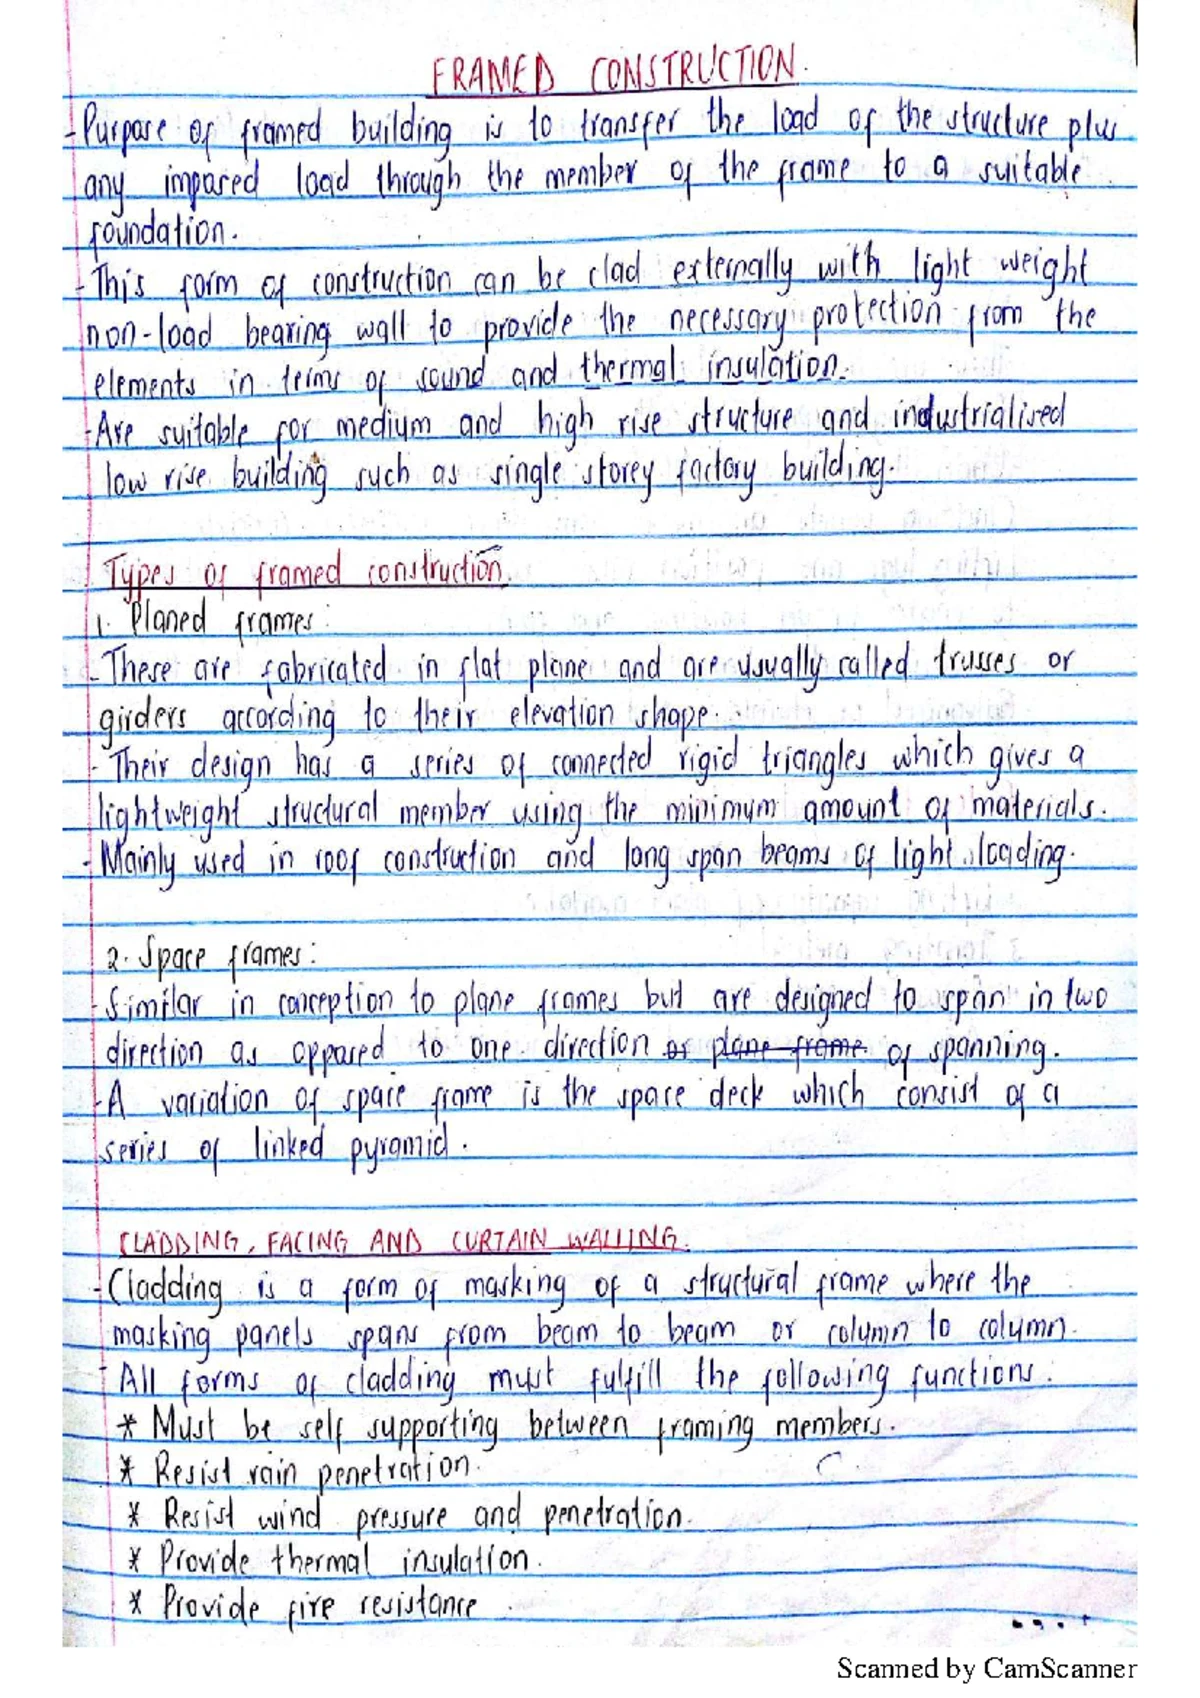 FRAMED CONSTRUCTION.
- Purpose of framed building is to transfer the load of the structure plus
any imposed load through the member of the frame to a suitable
foundation.
- This form of construction can be clad externally with light weight
non-load bearing wall to provide the necessary protection from the
elements in terms of sound and thermal insulation.
- Are suitable for medium and high rise structure and industrialised
low rise building such as single storey factory building.
Types of framed construction
1. Planed frames:
- These are fabricated in flat plane and are usually called trusses or
girders according to their elevation shape.
- Their design has a series of connected rigid triangles which gives a
lightweight structural member using the minimum amount of materials.
- Mainly used in roof construction and long span beams of light loading.
2. Space frames:
- Similar in conception to plane frames but are designed to span in two
direction as opposed to one direction or plane frame of spanning.
- A variation of space frame is the space deck which consist of a
series of linked pyramid.
CLADDING, FACING AND CURTAIN WALLING.
- Cladding is a form of masking of a structural frame where the
masking panels spans from beam to beam or column to column.
- All forms of cladding must fulfill the following functions:
* Must be self supporting between framing members.
* Resist rain penetration.
* Resist wind pressure and penetration.
* Provide thermal insulation.
* Provide fire resistance.
....
Scanned by CamScanner